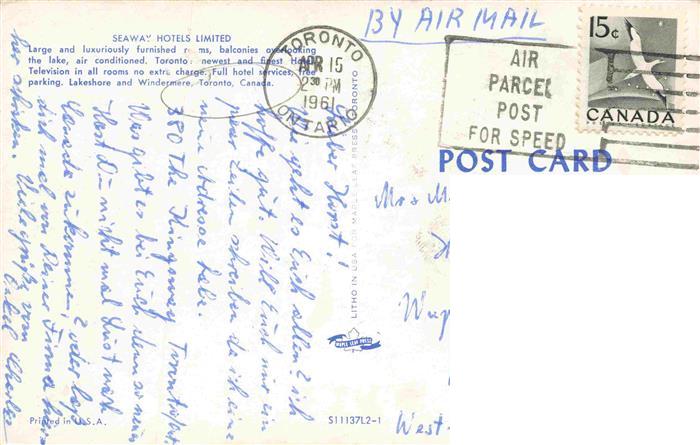 SEAWAY HOTELS LIMITED
Large and luxuriously furnished r ms, balconies overlooking
the lake, air conditioned. Toronto newest and finest Hot
Television in all rooms no extra charge. Full hotel services, free
parking. Lakeshore and Windermere, Toronto, Canada.
BY AIR MAIL
TORONTO
APR 15
2 30 PM
1961
ONTARIO
AIR
PARCEL
POST
FOR SPEED
15¢
CANADA
POST CARD
Lieber Horst!
Wie geht es Euch allen? ich
hoffe gut. Will Euch nur ein
paar Zeilen schreiben da ich eine
neue Adresse habe.
880 The Kingsway Toronto/Ont.
Was geht es bei Euch denn so neues
Hast Du nicht mal Lust nach
Canada zukommen, oder lass
dich mal von Deiner Firma hier
her schicken. Viele Grüße von
Onkel Charles
Mr + M
Wup
West-
LITHO IN USA FOR MAPLE LEAF PRESS TORONTO
MAPLE LEAF PRESS
Printed in U.S.A.
S11137L2-1